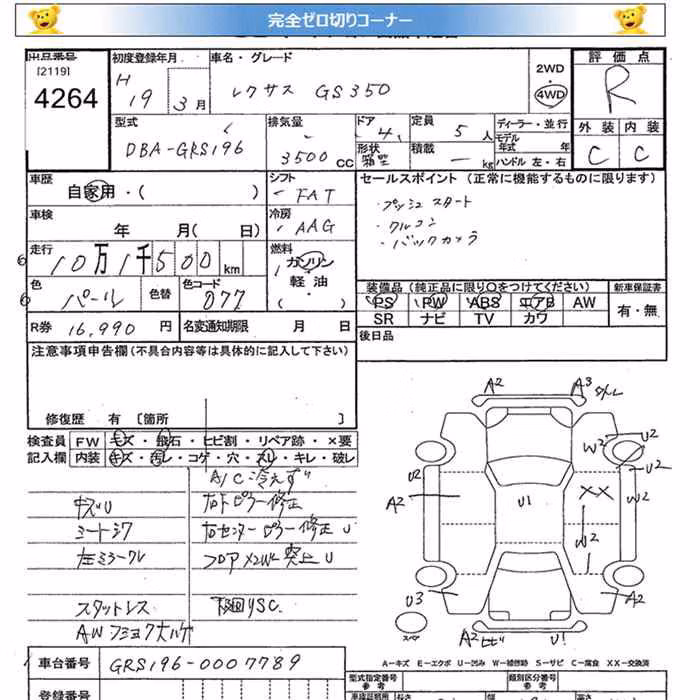 完全ゼロ切りコーナー
出品番号 初度登録年月 車名・グレード 評価点
[2119]
4264 H 19 3月 レクサス GS350 2WD 4WD R
型式 排気量 ドア 4 定員 5人 ディーラー・並行 外装 内装
DBA-GRS196 3500CC 形状 箱型 積載 - kg モデル年式 年 ハンドル 左・右 C C
車歴 シフト セールスポイント (正常に機能するものに限ります)
自家用・( ) FAT ・プッシュスタート
車検 冷房 ・クルコン
年 月( 日) AAG ・バックカメラ
走行 燃料
10万1千500km ガソリン
色 色替 色コード 軽油 装備品(純正品に限り〇をつけてください) 新車保証書
パール 077 ・( ) PS PW ABS エアB AW 有・無
R券 16,990円 名変通知期限 月 日 SR ナビ TV カワ
注意事項申告欄(不具合内容等は具体的に記入して下さい) 後日品
修復歴 有 [箇所 ]
検査員 FW キズ・飛石・ヒビ割・リペア跡・×要
記入欄 内装 キズ・汚レ・コゲ・穴・スレ・キレ・破レ
A/C冷えず
キズU 右Fピラー修正
シートシワ 右センターピラー修正U
左ミラークレ フロアメンバー突上U
スタットレス 下回りSC
AWフミヨク大ハゲ
A2 A3
U2 W2 U2 U2
A2 U1 XX W2
W2
U3 A2
スペア A2 U1
A-キズ E-エクボ U-凹み W-補修跡 S-サビ C-腐食 XX-交換済
車台番号 GRS196-0007789 型式指定番号 参考 類別区分番号 参考
登録番号